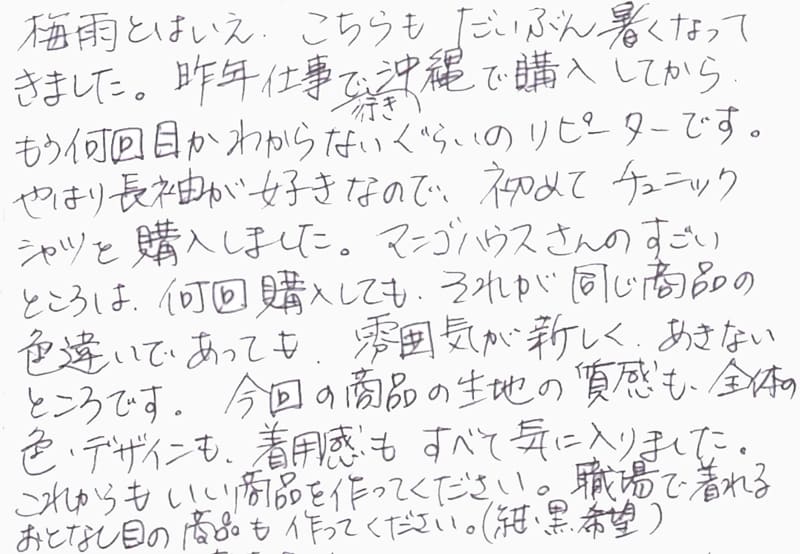 梅雨とはいえ、こちらも だいぶん暑くなって
きました。昨年仕事で行き沖縄で購入してから、
もう何回目かわからないぐらいのリピーターです。
やはり長袖が好きなので、初めて チュニック
シャツを購入しました。マンゴハウスさんのすごい
ところは、何回購入しても、それが同じ商品の
色違いであっても、雰囲気が新しく、あきない
ところです。今回の商品の生地の質感も、全体の
色・デザインも、着用感も すべて気に入りました。
これからもいい商品を作ってください。職場で着れる
おとなし目の商品も作ってください。(紺・黒希望)